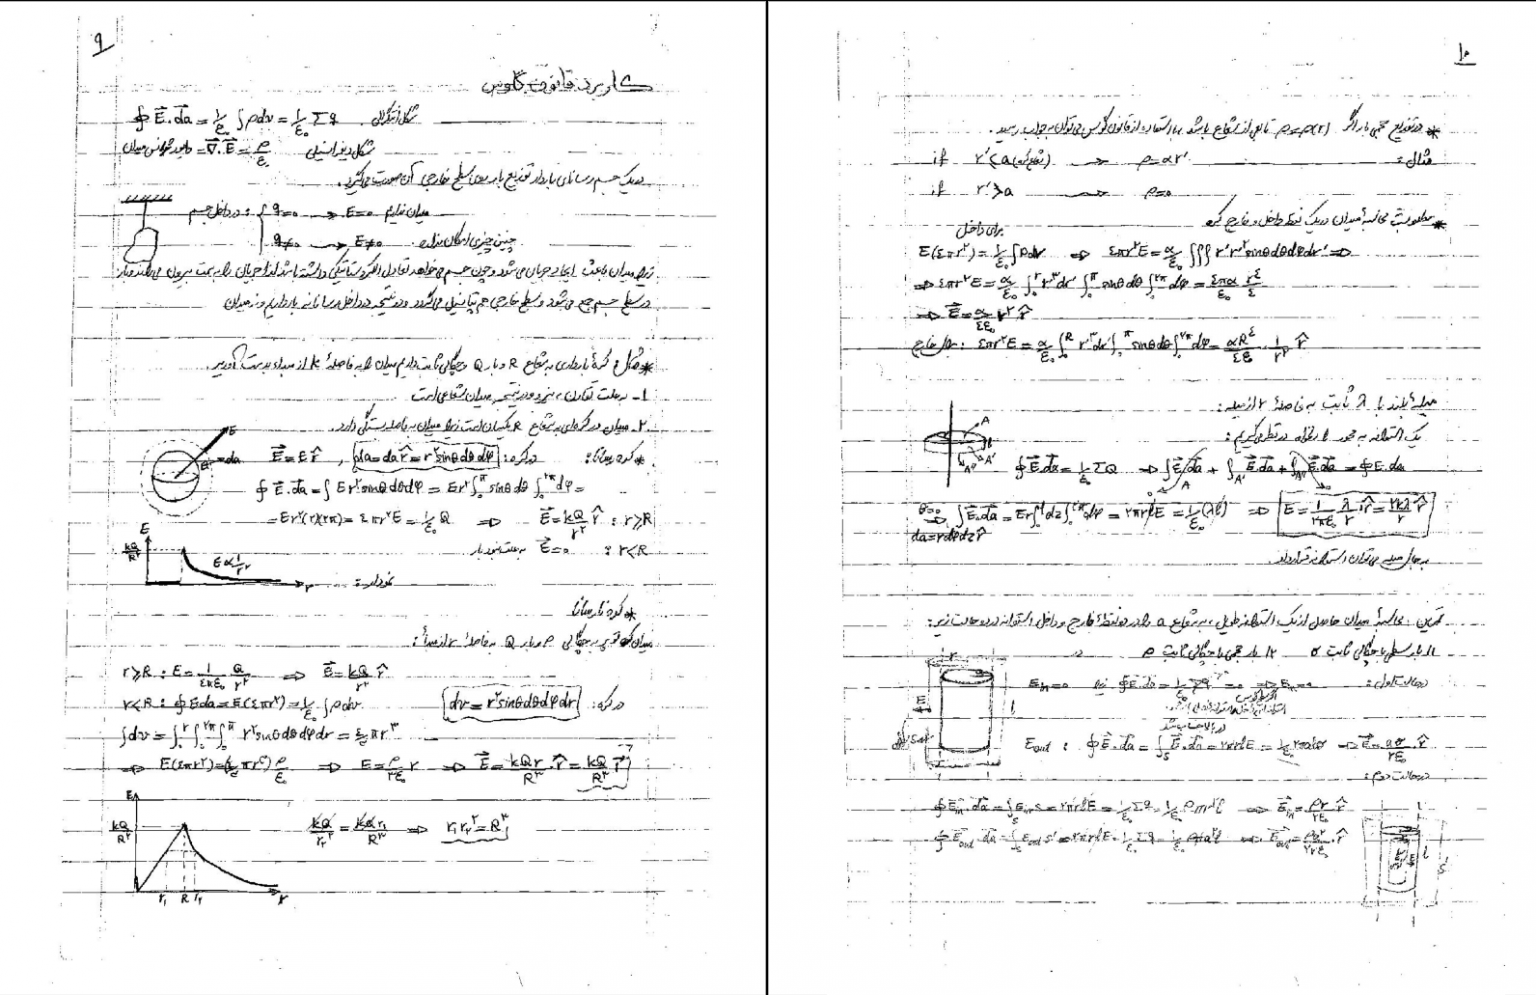 ۹
کاربرد قانون گاوس
شکل انتگرالی. ∮ E⃗.da⃗ = 1/ε₀ ∫ρdv = 1/ε₀ Σq
شکل دیفرانسیلی ∇⃗.E⃗ = ρ/ε₀ = میدان
در یک جسم رسانای باردار توزیع بار روی سطح خارجی آن صورت می‌گیرد.
در داخل جسم : { q=0 → E=0 میدان نداریم
q≠0 → E≠0 چنین چیزی امکان ندارد
زیرا میدان باعث ایجاد جریان می‌شود و چون جسم می‌خواهد تعادل الکترواستاتیکی داشته باشد لذا جریان را به سمت بیرون
در سطح جسم جمع می‌شود و سطح خارجی هم پتانسیل می‌گردد و در نتیجه در داخل رسانا نه بار داریم و نه میدان
* مثال: کرهٔ بارداری به شعاع R و بار Q و چگالی ثابت داریم میدان را به فاصلهٔ r از مبداء بدست آورید.
۱- به علت تقارن، در نتیجه میدان شعاعی است
۲- میدان در کره‌ای به شعاع R یکسان است زیرا میدان به فاصله بستگی دارد.
* کره رسانا: در کره: da⃗ = da r̂ = r²sinθdθdφ , E⃗ = E r̂
∮ E⃗.da⃗ = ∫ Er²sinθdθdφ = Er² ∫₀^π sinθdθ ∫₀^۲π dφ =
= Er²(۲)(۲π) = ۴πr²E = 1/ε₀ Q ⇒ E⃗ = kQ/r² r̂ : r≥R
E⃗=0 : r<R
نمودار: E kQ/R² E∝1/r² r
* کره نارسانا
میدان کره توپر به چگالی ρ و بار Q به فاصلهٔ r از مبدأ:
r≥R : E = 1/۴πε₀ Q/r² ⇒ E⃗ = kQ/r² r̂
r<R : ∮Eda = E(۴πr²) = 1/ε₀ ∫ρdv در کره: dv = r²sinθdθdφdr
∫dv = ∫₀^r ∫₀^۲π ∫₀^π r²sinθdθdφdr = ۴/۳ πr³
⇒ E(۴πr²) = (۴/۳ πr³) ρ/ε₀ ⇒ E = ρ/۳ε₀ r ⇒ E⃗ = kQr/R³ r̂ = kQ/R³ r⃗
kQ/r₂² = kQr₁/R³ ⇒ r₁r₂² = R³
E kQ/R² r₁ R r₂ r
۱۰
* در توزیع حجمی بار اگر ρ=ρ(r) تابعی از شعاع باشد با استفاده از قانون گوس می‌توان به جواب رسید.
مثال: if r'<a (شعاع کره) → ρ=αr'
if r'>a → ρ=0
* مطلوبست محاسبهٔ میدان در یک نقطه داخل و خارج کره
برای داخل
E(۴πr²) = 1/ε₀ ∫ρdv ⇒ ۴πr²E = α/ε₀ ∫∫∫ r'r'²sinθdθdφdr' ⇒
⇒ ۴πr²E = α/ε₀ ∫₀^r r'³dr' ∫₀^π sinθdθ ∫₀^۲π dφ = ۴πα/ε₀ r⁴/۴
⇒ E⃗ = α/۴ε₀ r² r̂
خارج: ۴πr²E = α/ε₀ ∫₀^R r'³dr' ∫₀^π sinθdθ ∫₀^۲π dφ = αR⁴/۴ε₀ . 1/r² r̂
میلهٔ بلند با λ ثابت به فاصلهٔ r از میله:
یک استوانه به محور در نظر می‌گیریم:
A A' A''
∮ E⃗.da⃗ = 1/ε₀ ΣQ ⇒ ∫_A E⃗.da⃗ + ∫_A' E⃗.da⃗ + ∫_A'' E⃗.da⃗ = ∮ E.da
θ=0 ⇒ ∫E⃗.da⃗ = Er∫₀^l dz ∫₀^۲π dφ = ۲πrlE = 1/ε₀ (λl) ⇒ E⃗ = 1/۲πε₀ λ/r r̂ = ۲kλ/r r̂
da=rdφdz r̂
به جای میله می‌توان استوانه قرار داد.
تمرین: محاسبهٔ میدان حاصل از یک استوانه طویل، به شعاع a را در دو نقطهٔ خارج و داخل استوانه در دو حالت زیر:
۱) بار سطحی با چگالی ثابت σ ۲) بار حجمی با چگالی ثابت ρ
حالت اول: E_in=0 ∮ E⃗.da⃗ = 1/ε₀ Σq = 0 ⇒ E_in=0
E_out : ∮ E⃗.da⃗ = ∫_S E⃗.da⃗ = ۲πrlE = 1/ε₀ ۲πalσ ⇒ E⃗ = aσ/rε₀ r̂
در حالت دوم:
∮ E⃗_in.da⃗ = ∫_S E_in s = ۲πrlE = 1/ε₀ Σq = 1/ε₀ ρπr²l ⇒ E⃗_in = ρr/۲ε₀ r̂
∮ E⃗_out.da⃗ = ∫_S E_out s' = ۲πrlE = 1/ε₀ Σq = 1/ε₀ ρπa²l ⇒ E⃗_out = ρa²/۲rε₀ r̂